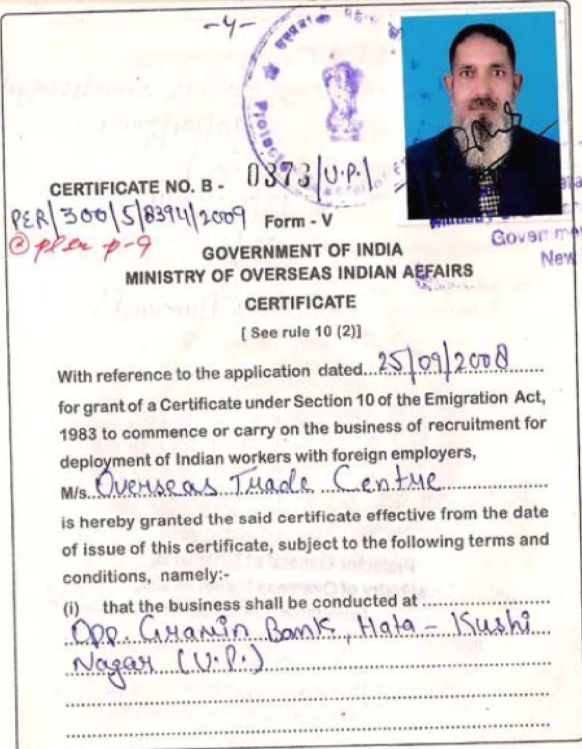 -4-
CERTIFICATE NO. B - 0373/U.P./
PER/300/5/8394/2009 Form - V
GOVERNMENT OF INDIA
MINISTRY OF OVERSEAS INDIAN AFFAIRS
CERTIFICATE
[ See rule 10 (2)]
With reference to the application dated...25/09/2008
for grant of a Certificate under Section 10 of the Emigration Act,
1983 to commence or carry on the business of recruitment for
deployment of Indian workers with foreign employers,
M/s. Overseas Trade Centre
is hereby granted the said certificate effective from the date
of issue of this certificate, subject to the following terms and
conditions, namely:-
(i) that the business shall be conducted at
Opp. Gramin Bank, Hata - Kushi
Nagar (U.P.)